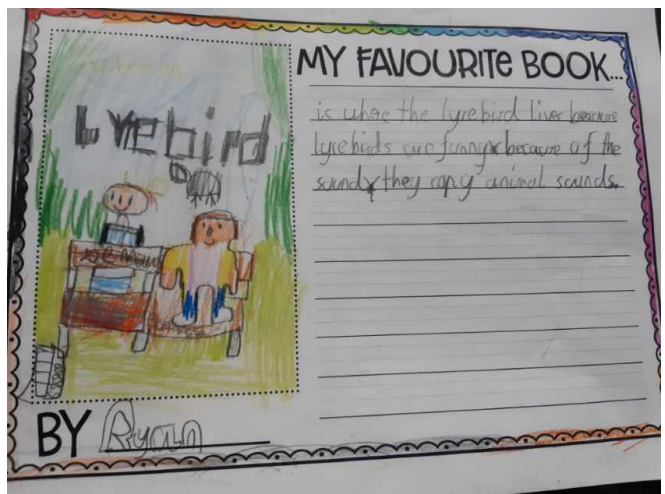 MY FAVOURITE BOOK...
Lyrebird
is where the lyrebird lives because
lyrebirds are funny because of the
sound they copy animal sounds.
BY Ryan